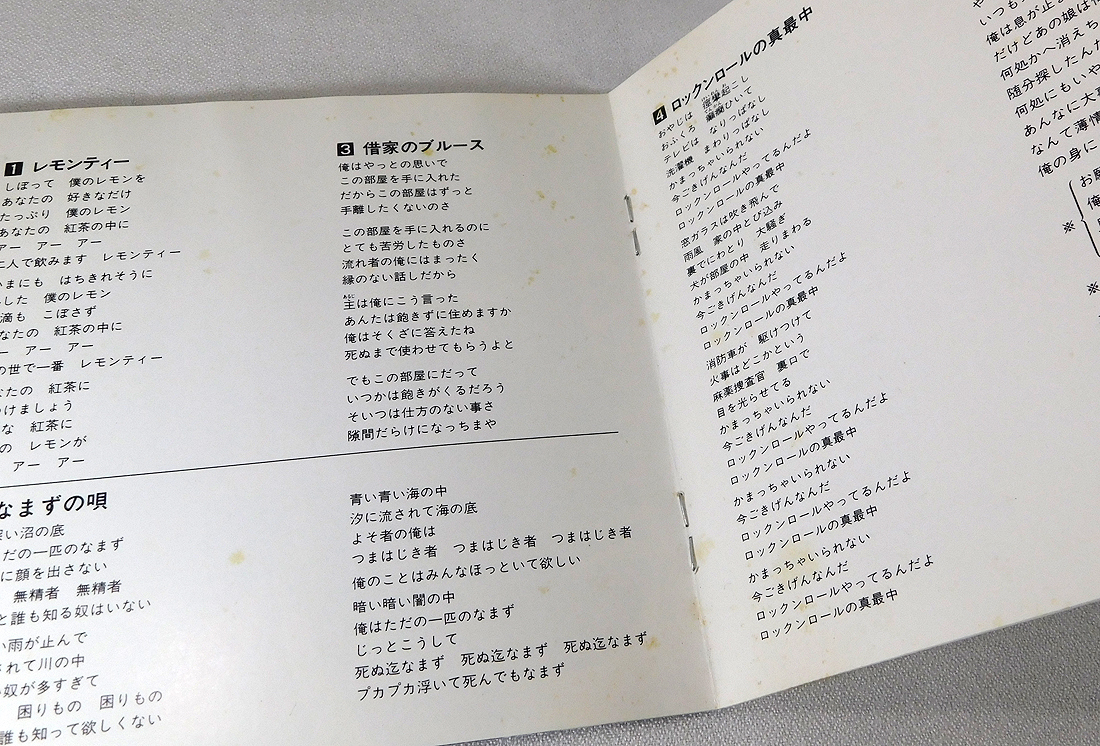 1 レモンティー
しぼって 僕のレモンを
あなたの 好きなだけ
たっぷり 僕のレモン
あなたの 紅茶の中に
アー アー アー
人で飲みます レモンティー
いまにも はちきれそうに
した 僕のレモン
滴も こぼさず
なたの 紅茶の中に
ー アー アー
の世で一番 レモンティー
なたの 紅茶に
つけましょう
な 紅茶に
の レモンが
アー アー
3 借家のブルース
俺はやっとの思いで
この部屋を手に入れた
だからこの部屋はずっと
手離したくないのさ
この部屋を手に入れるのに
とても苦労したものさ
流れ者の俺にはまったく
縁のない話しだから
主は俺にこう言った
あんたは飽きずに住めますか
俺はそくざに答えたね
死ぬまで使わせてもらうよと
でもこの部屋にだって
いつかは飽きがくるだろう
そいつは仕方のない事さ
隙間だらけになっちまや
なまずの唄
い沼の底
だの一匹のなまず
に顔を出さない
無精者 無精者
と誰も知る奴はいない
い雨が止んで
されて川の中
奴が多すぎて
困りもの 困りもの
誰も知って欲しくない
青い青い海の中
汐に流されて海の底
よそ者の俺は
つまはじき者 つまはじき者 つまはじき者
俺のことはみんなほっといて欲しい
暗い暗い闇の中
俺はただの一匹のなまず
じっとこうして
死ぬ迄なまず 死ぬ迄なまず 死ぬ迄なまず
プカプカ浮いて死んでもなまず
4 ロックンロールの真最中
おやじは 痙攣起こし
おふくろ 癲癇ひいて
テレビは なりっぱなし
洗濯機 まわりっぱなし
かまっちゃいられない
今ごきげんなんだ
ロックンロールやってるんだよ
ロックンロールの真最中
窓ガラスは吹き飛んで
雨風 家の中とび込み
裏でにわとり 大騒ぎ
犬が部屋の中 走りまわる
かまっちゃいられない
今ごきげんなんだ
ロックンロールやってるんだよ
ロックンロールの真最中
消防車が 駆けつけて
火事はどこかという
麻薬捜査官 裏口で
目を光らせてる
かまっちゃいられない
今ごきげんなんだ
ロックンロールやってるんだよ
ロックンロールの真最中
かまっちゃいられない
今ごきげんなんだ
ロックンロールやってるんだよ
ロックンロールの真最中
かまっちゃいられない
今ごきげんなんだ
ロックンロールやってるんだよ
ロックンロールの真最中
いつも
俺は息が止
だけどあの娘は
何処かへ消えち
随分探したん
何処にもいや
あんなに大
なんて薄情
俺の身に
お
俺
※
※